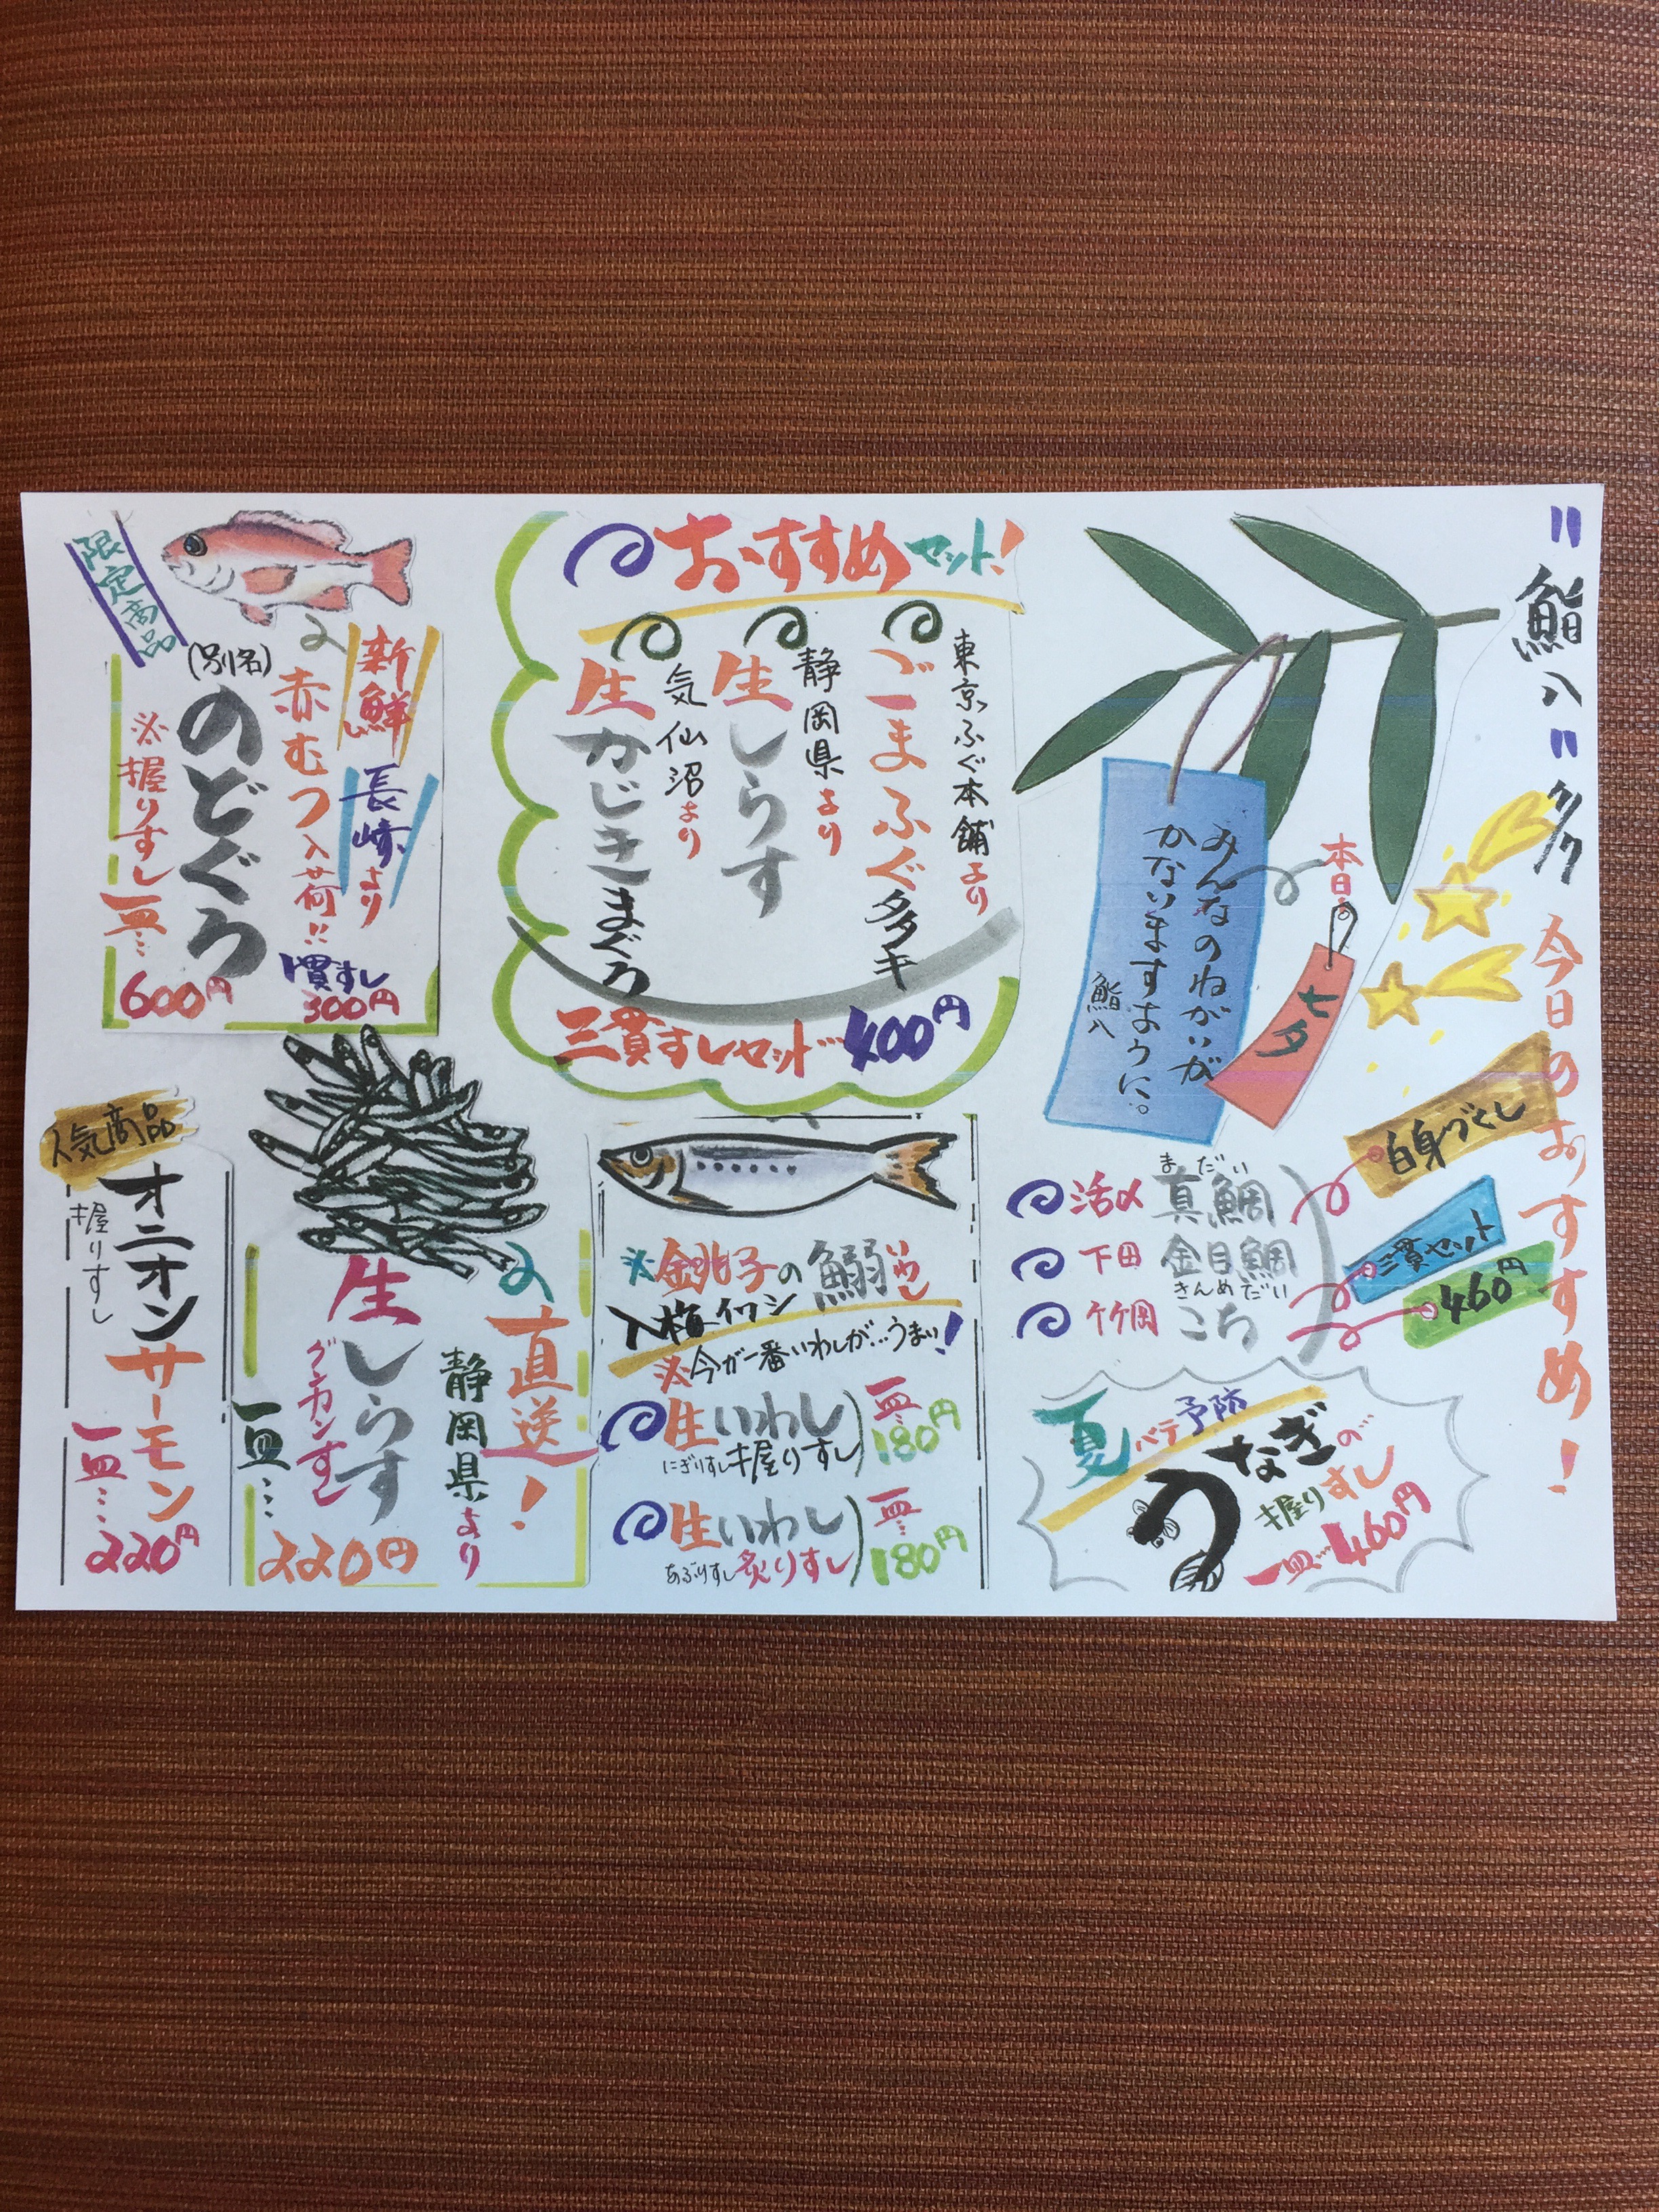 "鮨八"
今日のおすすめ!
みんなのねがいが
かないますように。
鮨八
本日
七夕
白身づくし
三貫セット
460円
活〆 真鯛 まだい
下田 金目鯛 きんめだい
竹岡 こち
夏バテ予防
うなぎの
握りすし
一皿…460円
おすすめセット!
東京ふぐ本舗より
ごまふぐ
静岡県より
生しらす
気仙沼より
生かじきまぐろ
三貫すしセット…400円
※銚子の鰯 いわし
入梅イワシ
※今が一番いわしが…うまい!
生いわし
にぎりすし 握りすし
一皿…180円
生いわし
あぶりすし 炙りすし
一皿…180円
限定商品
新鮮 長崎より
赤むつ入荷!!
(別名)
のどぐろ
※握りすし 一皿…
600円
一貫すし
300円
直送!
静岡県より
生しらす
グンカンすし
一皿…
220円
人気商品
オニオンサーモン
握りすし
一皿…
220円